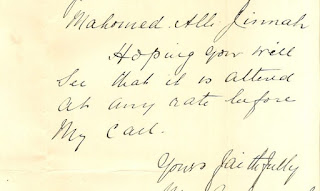 Mahomed Alli Jinnah
Hoping you will
See that it is attend
at any rate before
My Call.
Yours faithfully